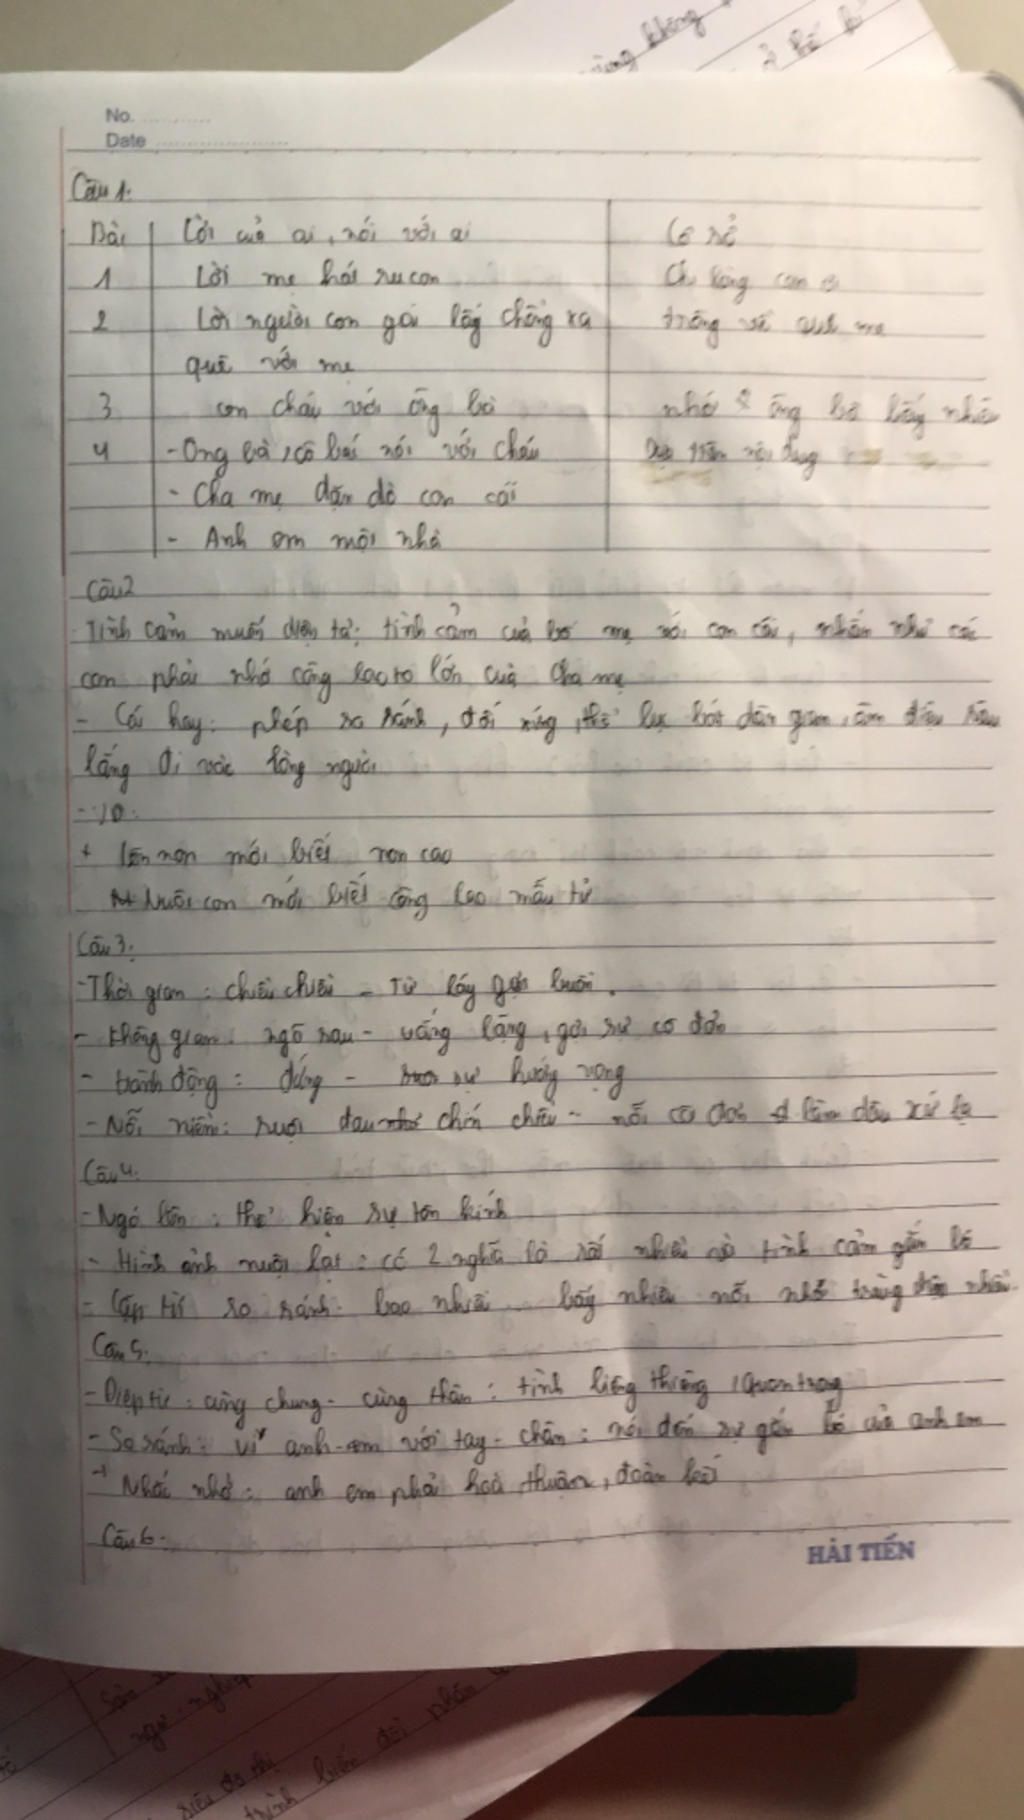 No.
Date
Câu 1:
Bài Lời của ai, nói với ai Cơ sở
1 Lời mẹ hát ru con con ơi
2 Lời người con gái lấy chồng xa trông về quê mẹ
quê với mẹ
3 con cháu với ông bà nhớ ông bà bấy nhiêu
4 - Ông bà, cô bác nói với cháu Dựa trên nội dung
- Cha mẹ dặn dò con cái
- Anh em một nhà
Câu 2
- Tình cảm muốn diễn tả: tình cảm của bố mẹ với con cái, nhắn nhủ các
con phải nhớ công lao to lớn của cha mẹ
- Cái hay: phép so sánh, đối xứng, thể lục bát dân gian, âm điệu sâu
lắng đi vào lòng người
- VD:
+ lên non mới biết non cao
Nuôi con mới biết công lao mẫu tử
Câu 3:
- Thời gian: chiều chiều - Từ láy gợi buồn.
- Không gian: ngõ sau - vắng lặng, gợi sự cô đơn
- Hành động: đứng - sự hướng vọng
- Nỗi niềm: ruột đau chín chiều - nỗi cô đơn làm dâu xứ lạ
Câu 4:
- Ngó lên: thể hiện sự tôn kính
- Hình ảnh nuột lạt: có 2 nghĩa là rất nhiều và tình cảm gắn bó
- Cặp từ so sánh: bao nhiêu bấy nhiêu nỗi nhớ trùng điệp
Câu 5:
- Điệp từ: cùng chung - cùng thân: tình thiêng, quan trọng
- So sánh: ví anh-em với tay-chân: nói đến sự gắn bó của anh em
Nhắc nhở: anh em phải hoà thuận, đoàn kết
Câu 6:
HẢI TIẾN